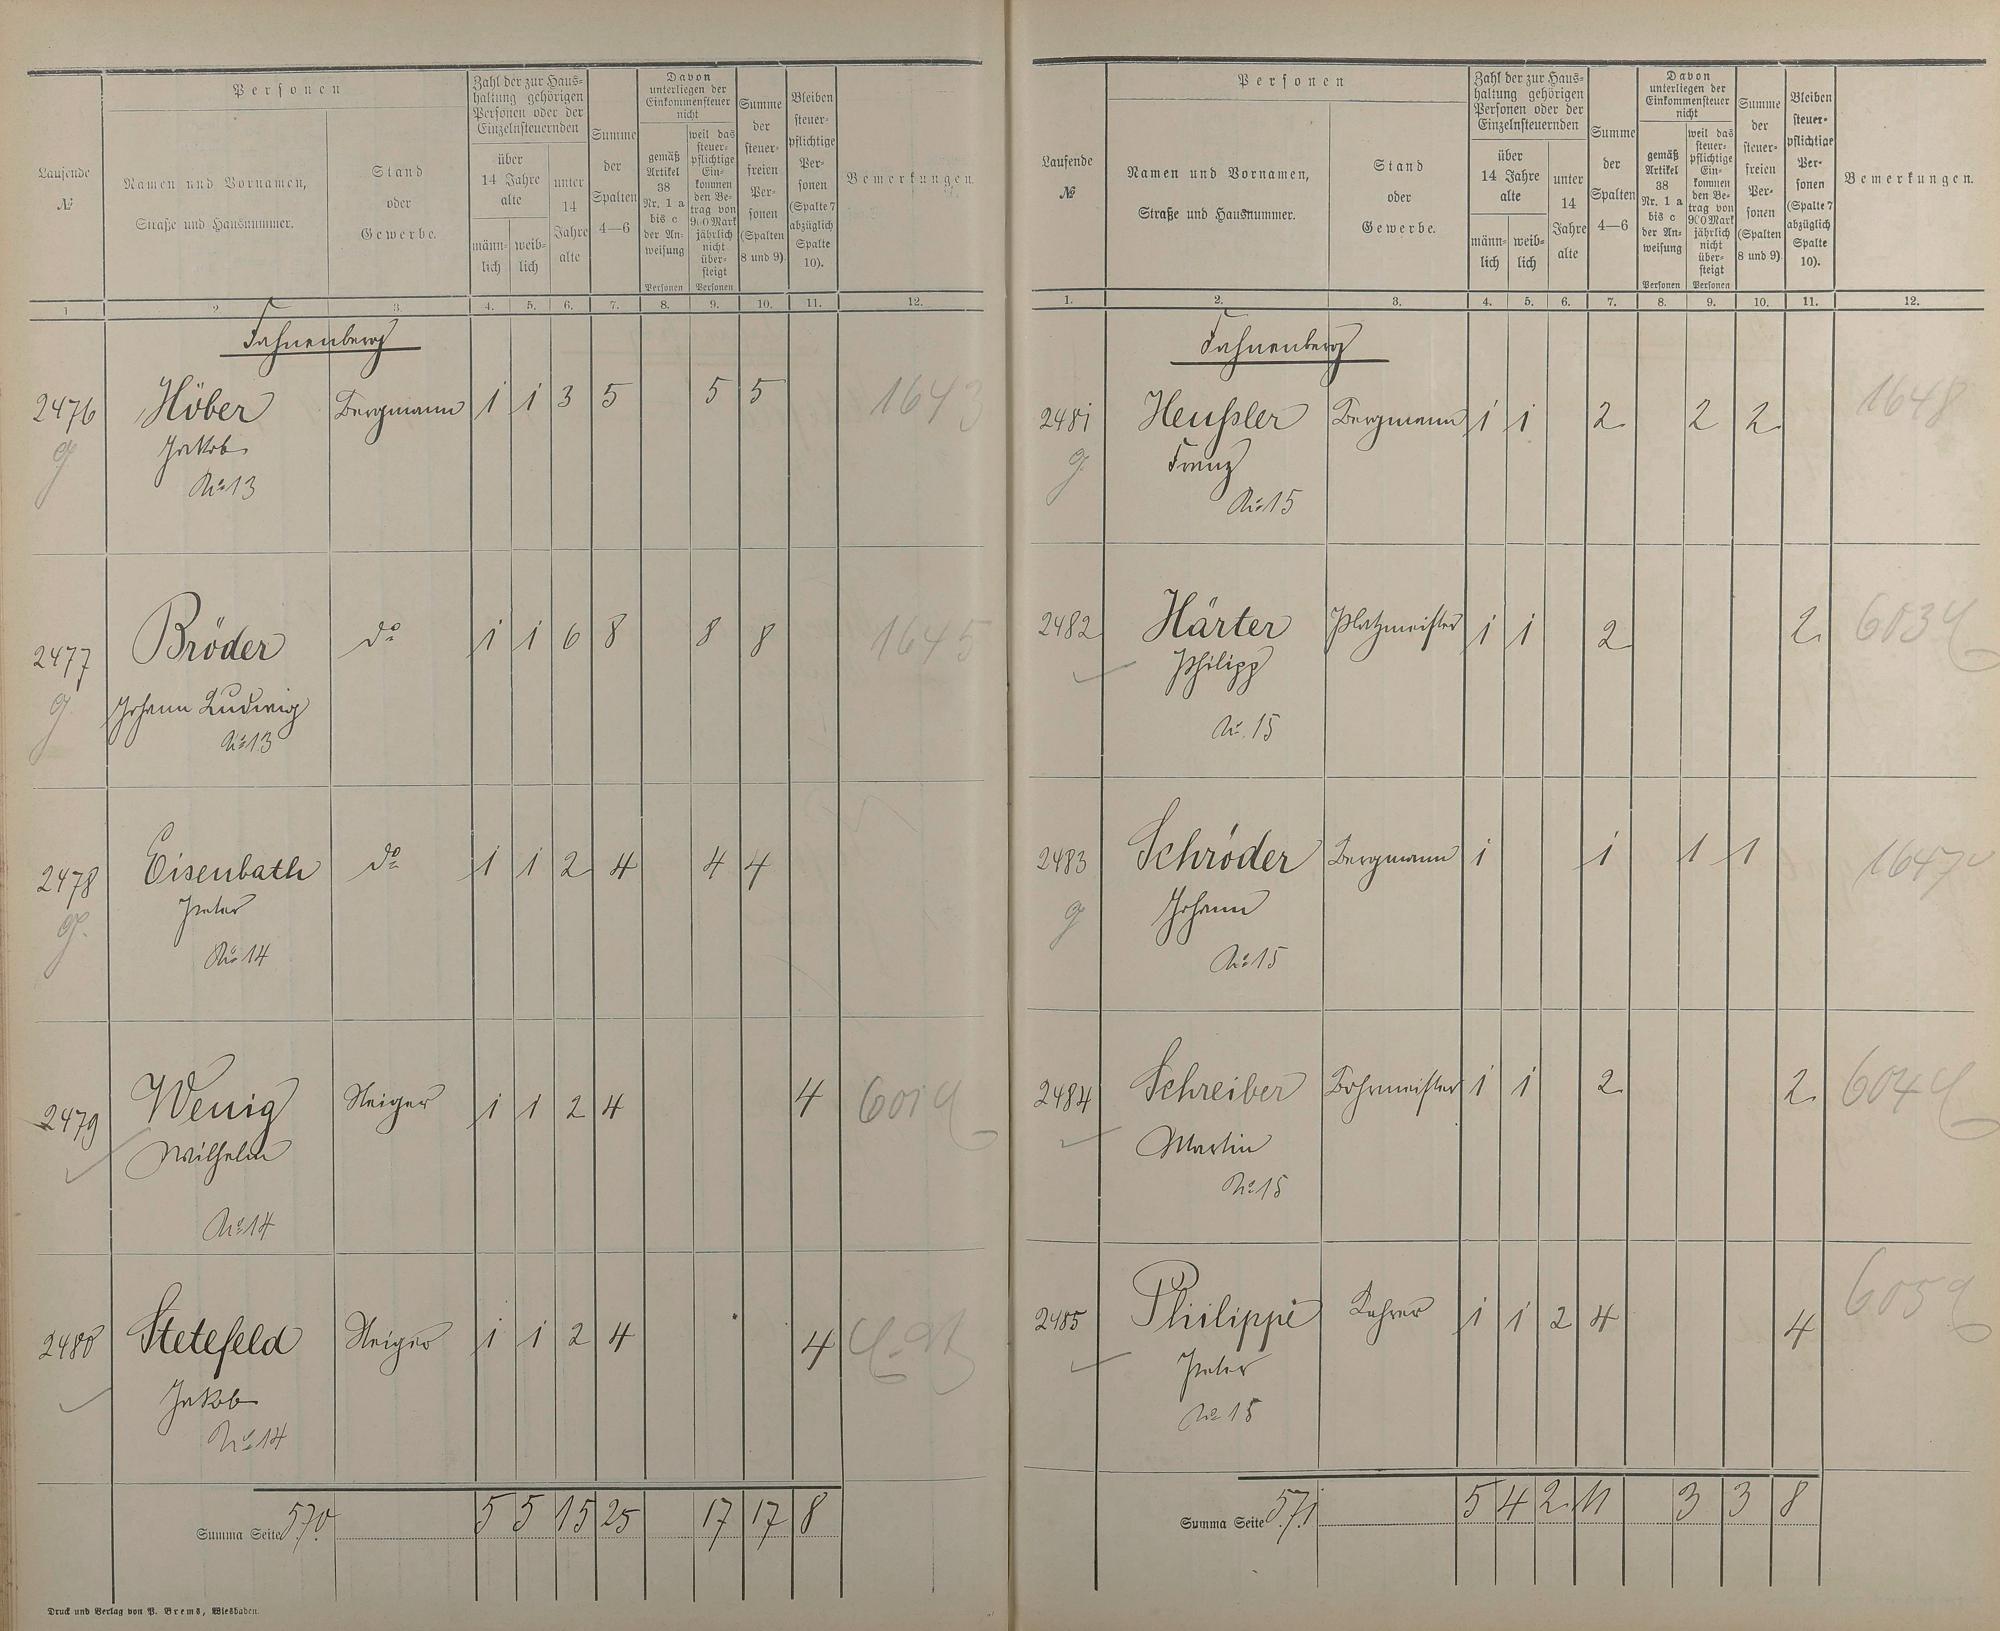 Laufende
№
Personen
Namen und Vornamen,
Straße und Hausnummer.
Stand
oder
Gewerbe.
Zahl der zur Haus-
haltung gehörigen
Personen oder der
Einzelnsteuernden
über
14 Jahre
alte
männ-
lich
weib-
lich
unter
14
Jahre
alte
Summe
der
Spalten
4—6
Davon
unterliegen der
Einkommensteuer
nicht
gemäß
Artikel
38
Nr. 1 a
bis c
der An-
weisung
Personen
weil das
steuer-
pflichtige
Ein-
kommen
den Be-
trag von
900 Mark
jährlich
nicht
über-
steigt
Personen
Summe
der
steuer-
freien
Per-
sonen
(Spalten
8 und 9)
Bleiben
steuer-
pflichtige
Per-
sonen
(Spalte 7
abzüglich
Spalte
10).
Bemerkungen.
1 2 3. 4. 5. 6. 7. 8. 9. 10. 11. 12.
Fahnenberg
2476 Höber Bergmann 1 1 3 5 5 5 1643
g Jakob
No 13
2477 Bröder do 1 1 6 8 8 8 1645
g Johann Ludwig
No 13
2478 Eisenbath do 1 1 2 4 4 4
g. Peter
No 14
2479 Wenig Steiger 1 1 2 4 4 601
Wilhelm
No 14
2480 Stetefeld Steiger 1 1 2 4 4
Jakob
No 14
Summa Seite 570. 5 5 15 25 17 17 8
Druck und Verlag von P. Brems, Wiesbaden.
Laufende
№
Personen
Namen und Vornamen,
Straße und Hausnummer.
Stand
oder
Gewerbe.
Zahl der zur Haus-
haltung gehörigen
Personen oder der
Einzelnsteuernden
über
14 Jahre
alte
männ-
lich
weib-
lich
unter
14
Jahre
alte
Summe
der
Spalten
4—6
Davon
unterliegen der
Einkommensteuer
nicht
gemäß
Artikel
38
Nr. 1 a
bis c
der An-
weisung
Personen
weil das
steuer-
pflichtige
Ein-
kommen
den Be-
trag von
900 Mark
jährlich
nicht
über-
steigt
Personen
Summe
der
steuer-
freien
Per-
sonen
(Spalten
8 und 9)
Bleiben
steuer-
pflichtige
Per-
sonen
(Spalte 7
abzüglich
Spalte
10).
Bemerkungen.
1. 2. 3. 4. 5. 6. 7. 8. 9. 10. 11. 12.
Fahnenberg
2481 Heußler Bergmann 1 1 2 2 2 1648
g. Franz
No 15
2482 Härter Platzmeister 1 1 2 2 603
Philipp
No. 15
2483 Schröder Bergmann 1 1 1 1 1647
g Johann
No 15
2484 Schreiber Bohrmeister 1 1 2 2 604
Martin
No 15
2485 Philippi Lehrer 1 1 2 4 4 605
Peter
No 15
Summa Seite 571 5 4 2 11 3 3 8